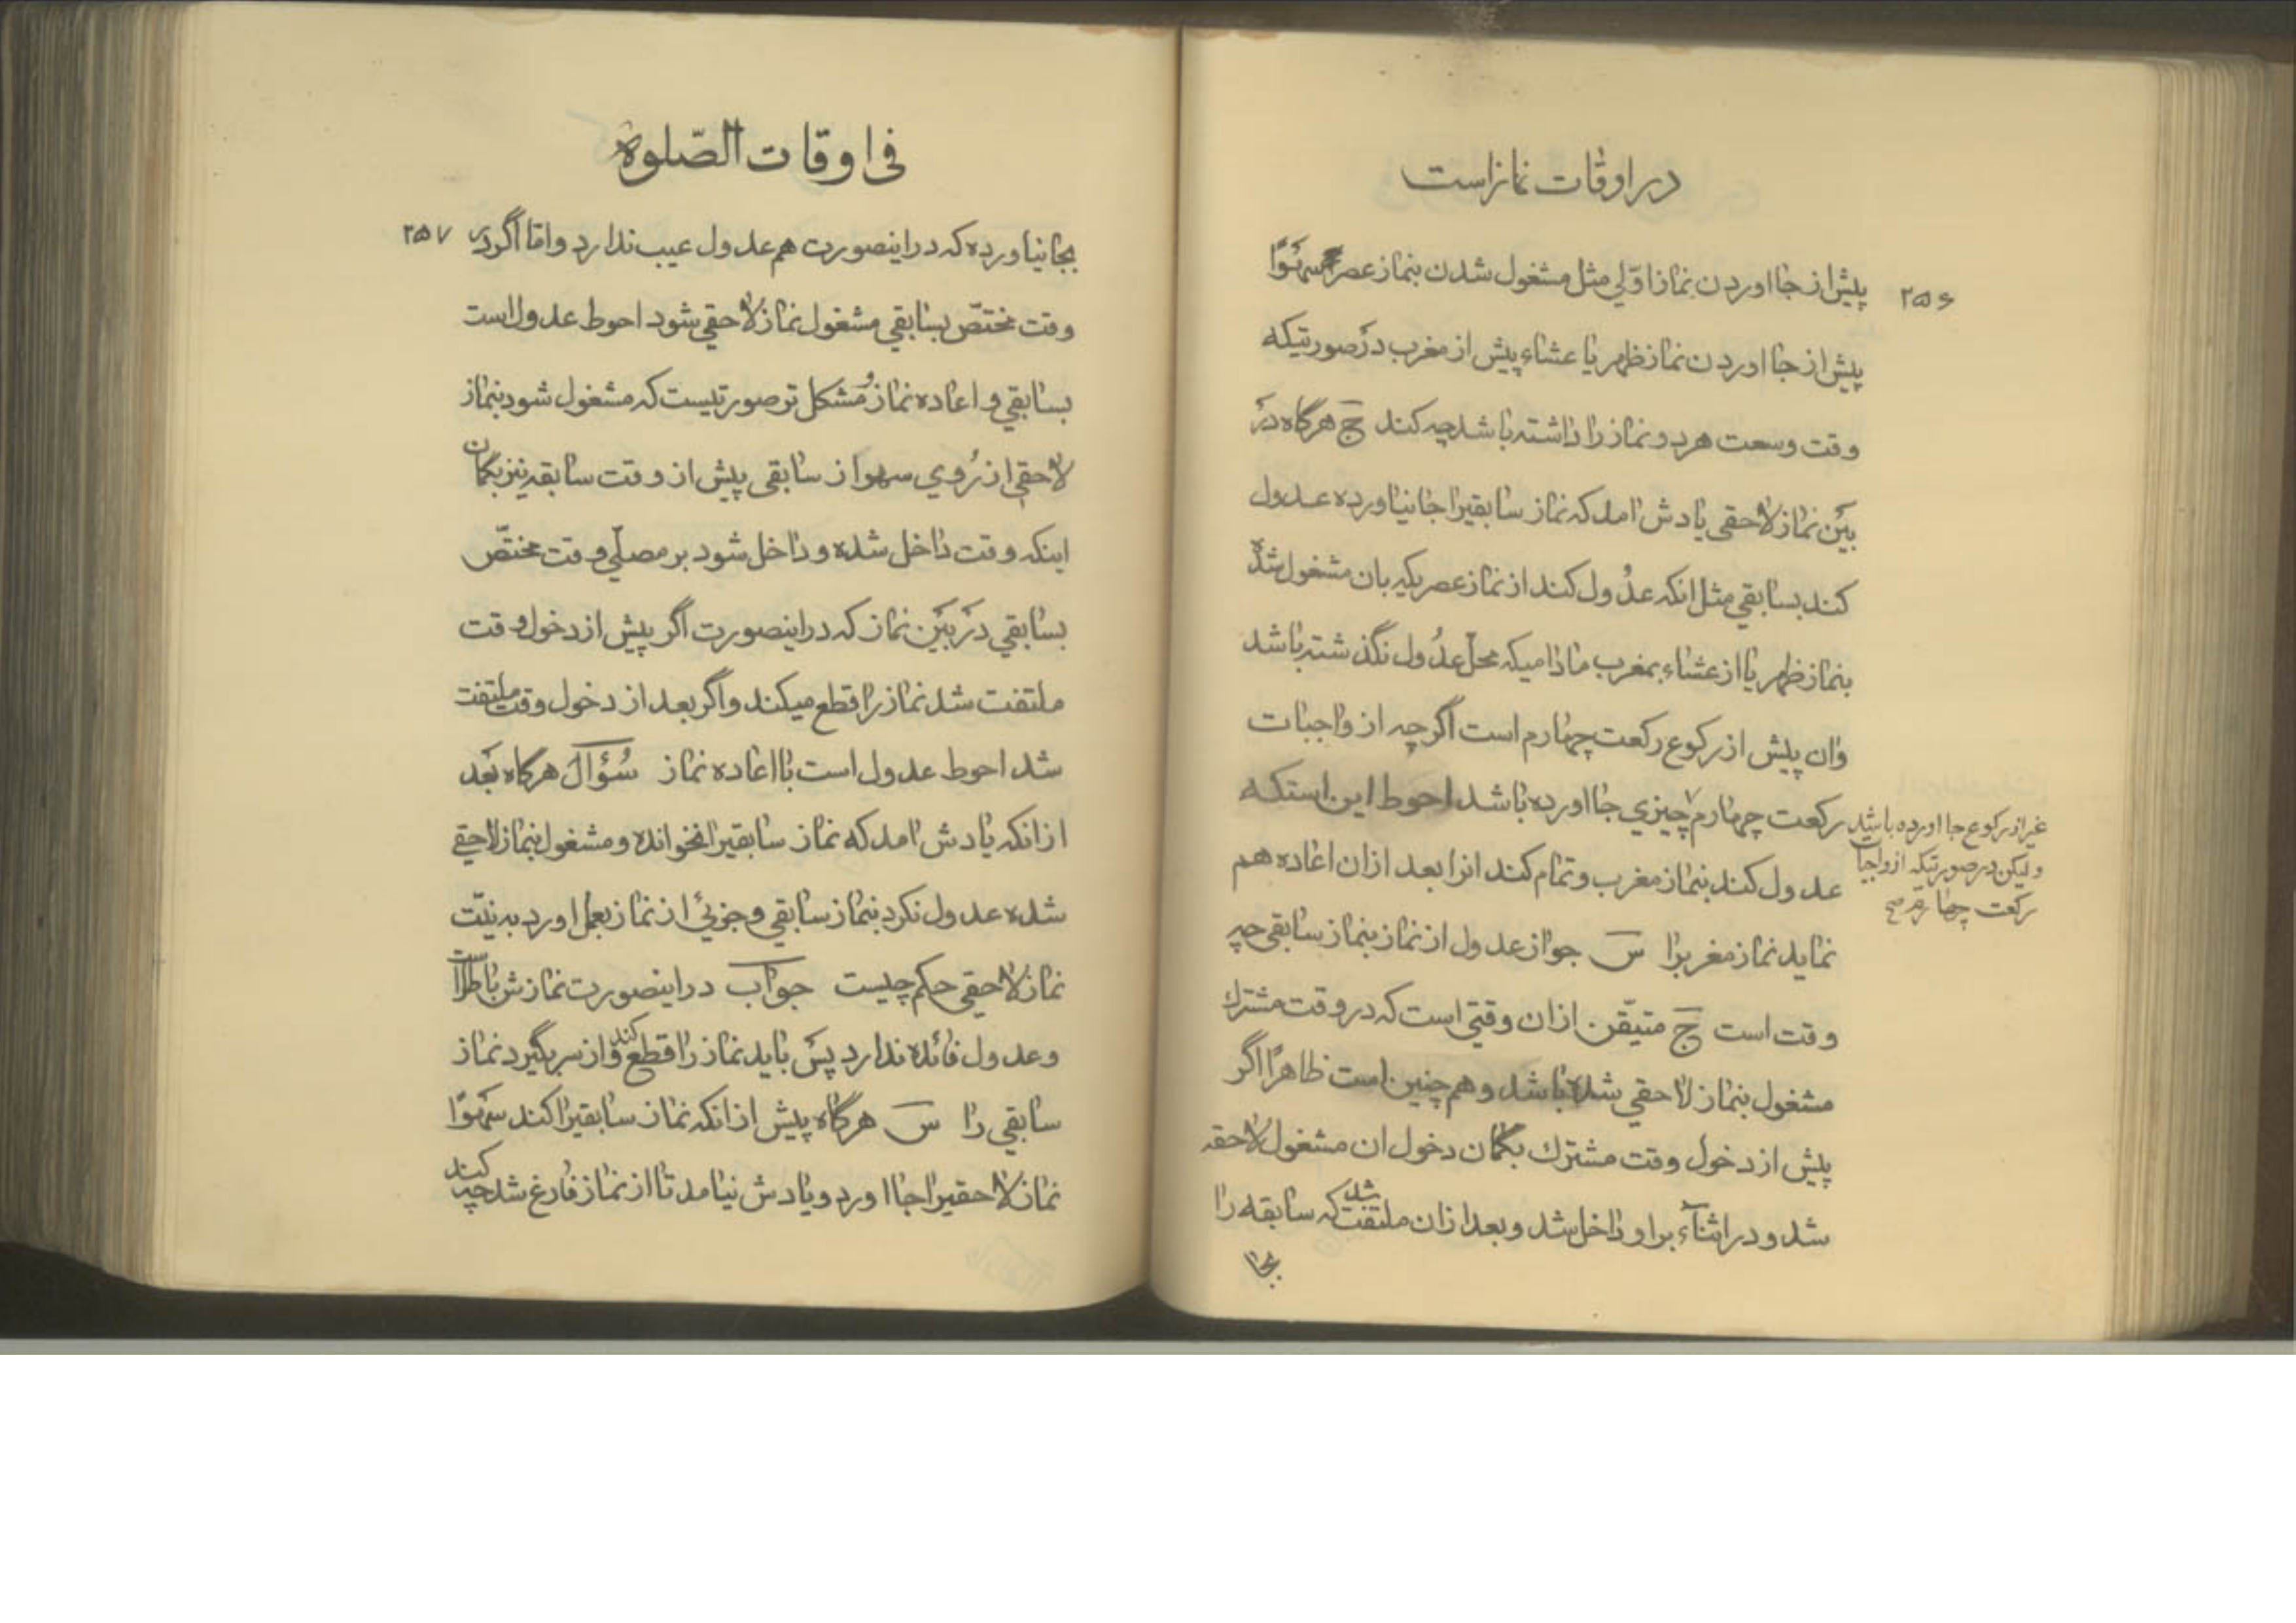 در اوقات نماز است
۲۵۶
پیش از جا اوردن نماز اوّلی مثل مشغول شدن بنماز عصر سهوًا
پیش از جا اوردن نماز ظهر یا عشاء پیش از مغرب در صورتیکه
وقت وسعت هر دو نماز را داشته باشد چه کند ج هرگاه در
بین نماز لاحقی یادش امد که نماز سابقیرا جا نیاورده عدول
کند بسابقی مثل انکه عدُول کند از نماز عصریکه بان مشغول شده
بنماز ظهر یا از عشاء بمغرب مادامیکه محلّ عدُول نگذشته باشد
وان پیش از رکوع رکعت چهارم است اگرچه از واجبات
رکعت چهارم چیزی جا اورده باشد احوط این استکه
غیر از رکوع جا اورده باشد
ولیکن در صورتیکه از واجبات
رکعت چهارم صح
عدول کند بنماز مغرب وتمام کند انرا بعد ازان اعاده هم
نماید نماز مغربرا س جواز عدول از نماز بنماز سابقی چه
وقت است ج متیقّن ازان وقتی است که در وقت مشترك
مشغول بنماز لاحقی شده باشد و هم چنین است ظاهرًا اگر
پیش از دخول وقت مشترك بگمان دخول ان مشغول لاحقه
شد و در اثنآء براو داخل شد و بعد ازان ملتفت شد که سابقه را
بجا
فی اوقات الصّلوة
۲۵۷
بجا نیاورده که در اینصورت هم عدول عیب ندارد و امّا اگر در
وقت مختصّ بسابقی مشغول نماز لاحقی شود احوط عدول است
بسابقی و اعاده نماز و مشکل تر صورتیست که مشغول شود بنماز
لاحقی از رُوی سهو از سابقی پیش از وقت سابقه نیز بگمان
اینکه وقت داخل شده و داخل شود بر مصلّی وقت مختصّ
بسابقی در بَین نماز که در اینصورت اگر پیش از دخول وقت
ملتفت شد نماز را قطع میکند و اگر بعد از دخول وقت ملتفت
شد احوط عدول است با اعاده نماز سُؤال هرگاه بَعد
ازانکه یادش امد که نماز سابقیرا نخوانده و مشغول بنماز لاحقی
شده عدول نکرد بنماز سابقی و جزئی از نماز بعمل اورد به نیّت
نماز لاحقی حکم چیست جواب در اینصورت نمازش باطل است
و عدول فائده ندارد پس باید نماز را قطع کند و از سر بگیرد نماز
سابقی را س هرگاه پیش ازانکه نماز سابقیرا کند سهوًا
نماز لاحقیرا جا اورد و یادش نیامد تا از نماز فارغ شد چه کند